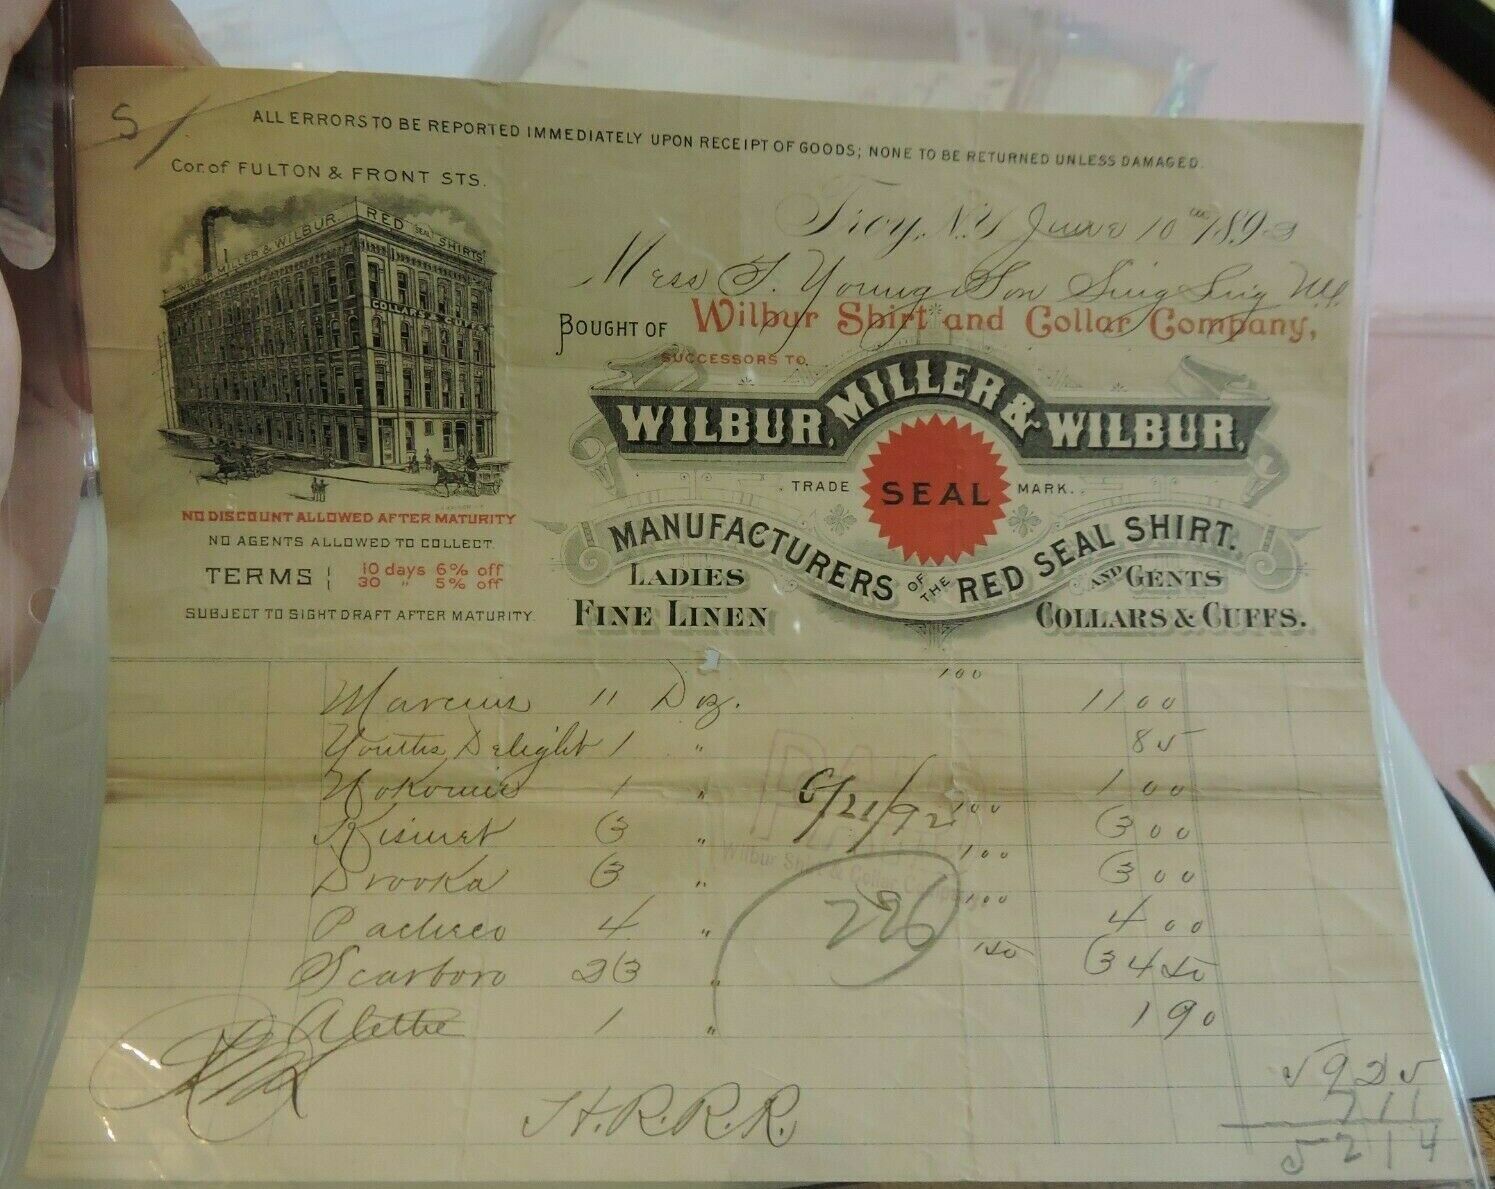 S/
ALL ERRORS TO BE REPORTED IMMEDIATELY UPON RECEIPT OF GOODS; NONE TO BE RETURNED UNLESS DAMAGED.
Cor. of FULTON & FRONT STS.
WILBUR, MILLER & WILBUR. RED SEAL SHIRTS
COLLARS & CUFFS
Troy, N.Y. June 10th 1893
Mess T. Young & Son Sing Sing
BOUGHT OF Wilbur Shirt and Collar Company,
SUCCESSORS TO
WILBUR, MILLER & WILBUR,
TRADE SEAL MARK.
MANUFACTURERS OF THE RED SEAL SHIRT.
LADIES AND GENTS
FINE LINEN COLLARS & CUFFS.
NO DISCOUNT ALLOWED AFTER MATURITY
NO AGENTS ALLOWED TO COLLECT.
TERMS 10 days 6% off
30 " 5% off
SUBJECT TO SIGHT DRAFT AFTER MATURITY.
11 Doz. 100 11 00
Youths Delight 1 " 85
Nokomis 1 " 1 00
Kismet 3 " 100 3 00
3 " 100 3 00
Pacheco 4 " 100 4 00
Scarboro 23 " 150 34 50
1 " 1 90
PAID
6/21/92
Wilbur Shirt & Collar Company
226
H.R.R.R.
59 25
7 11
52 14